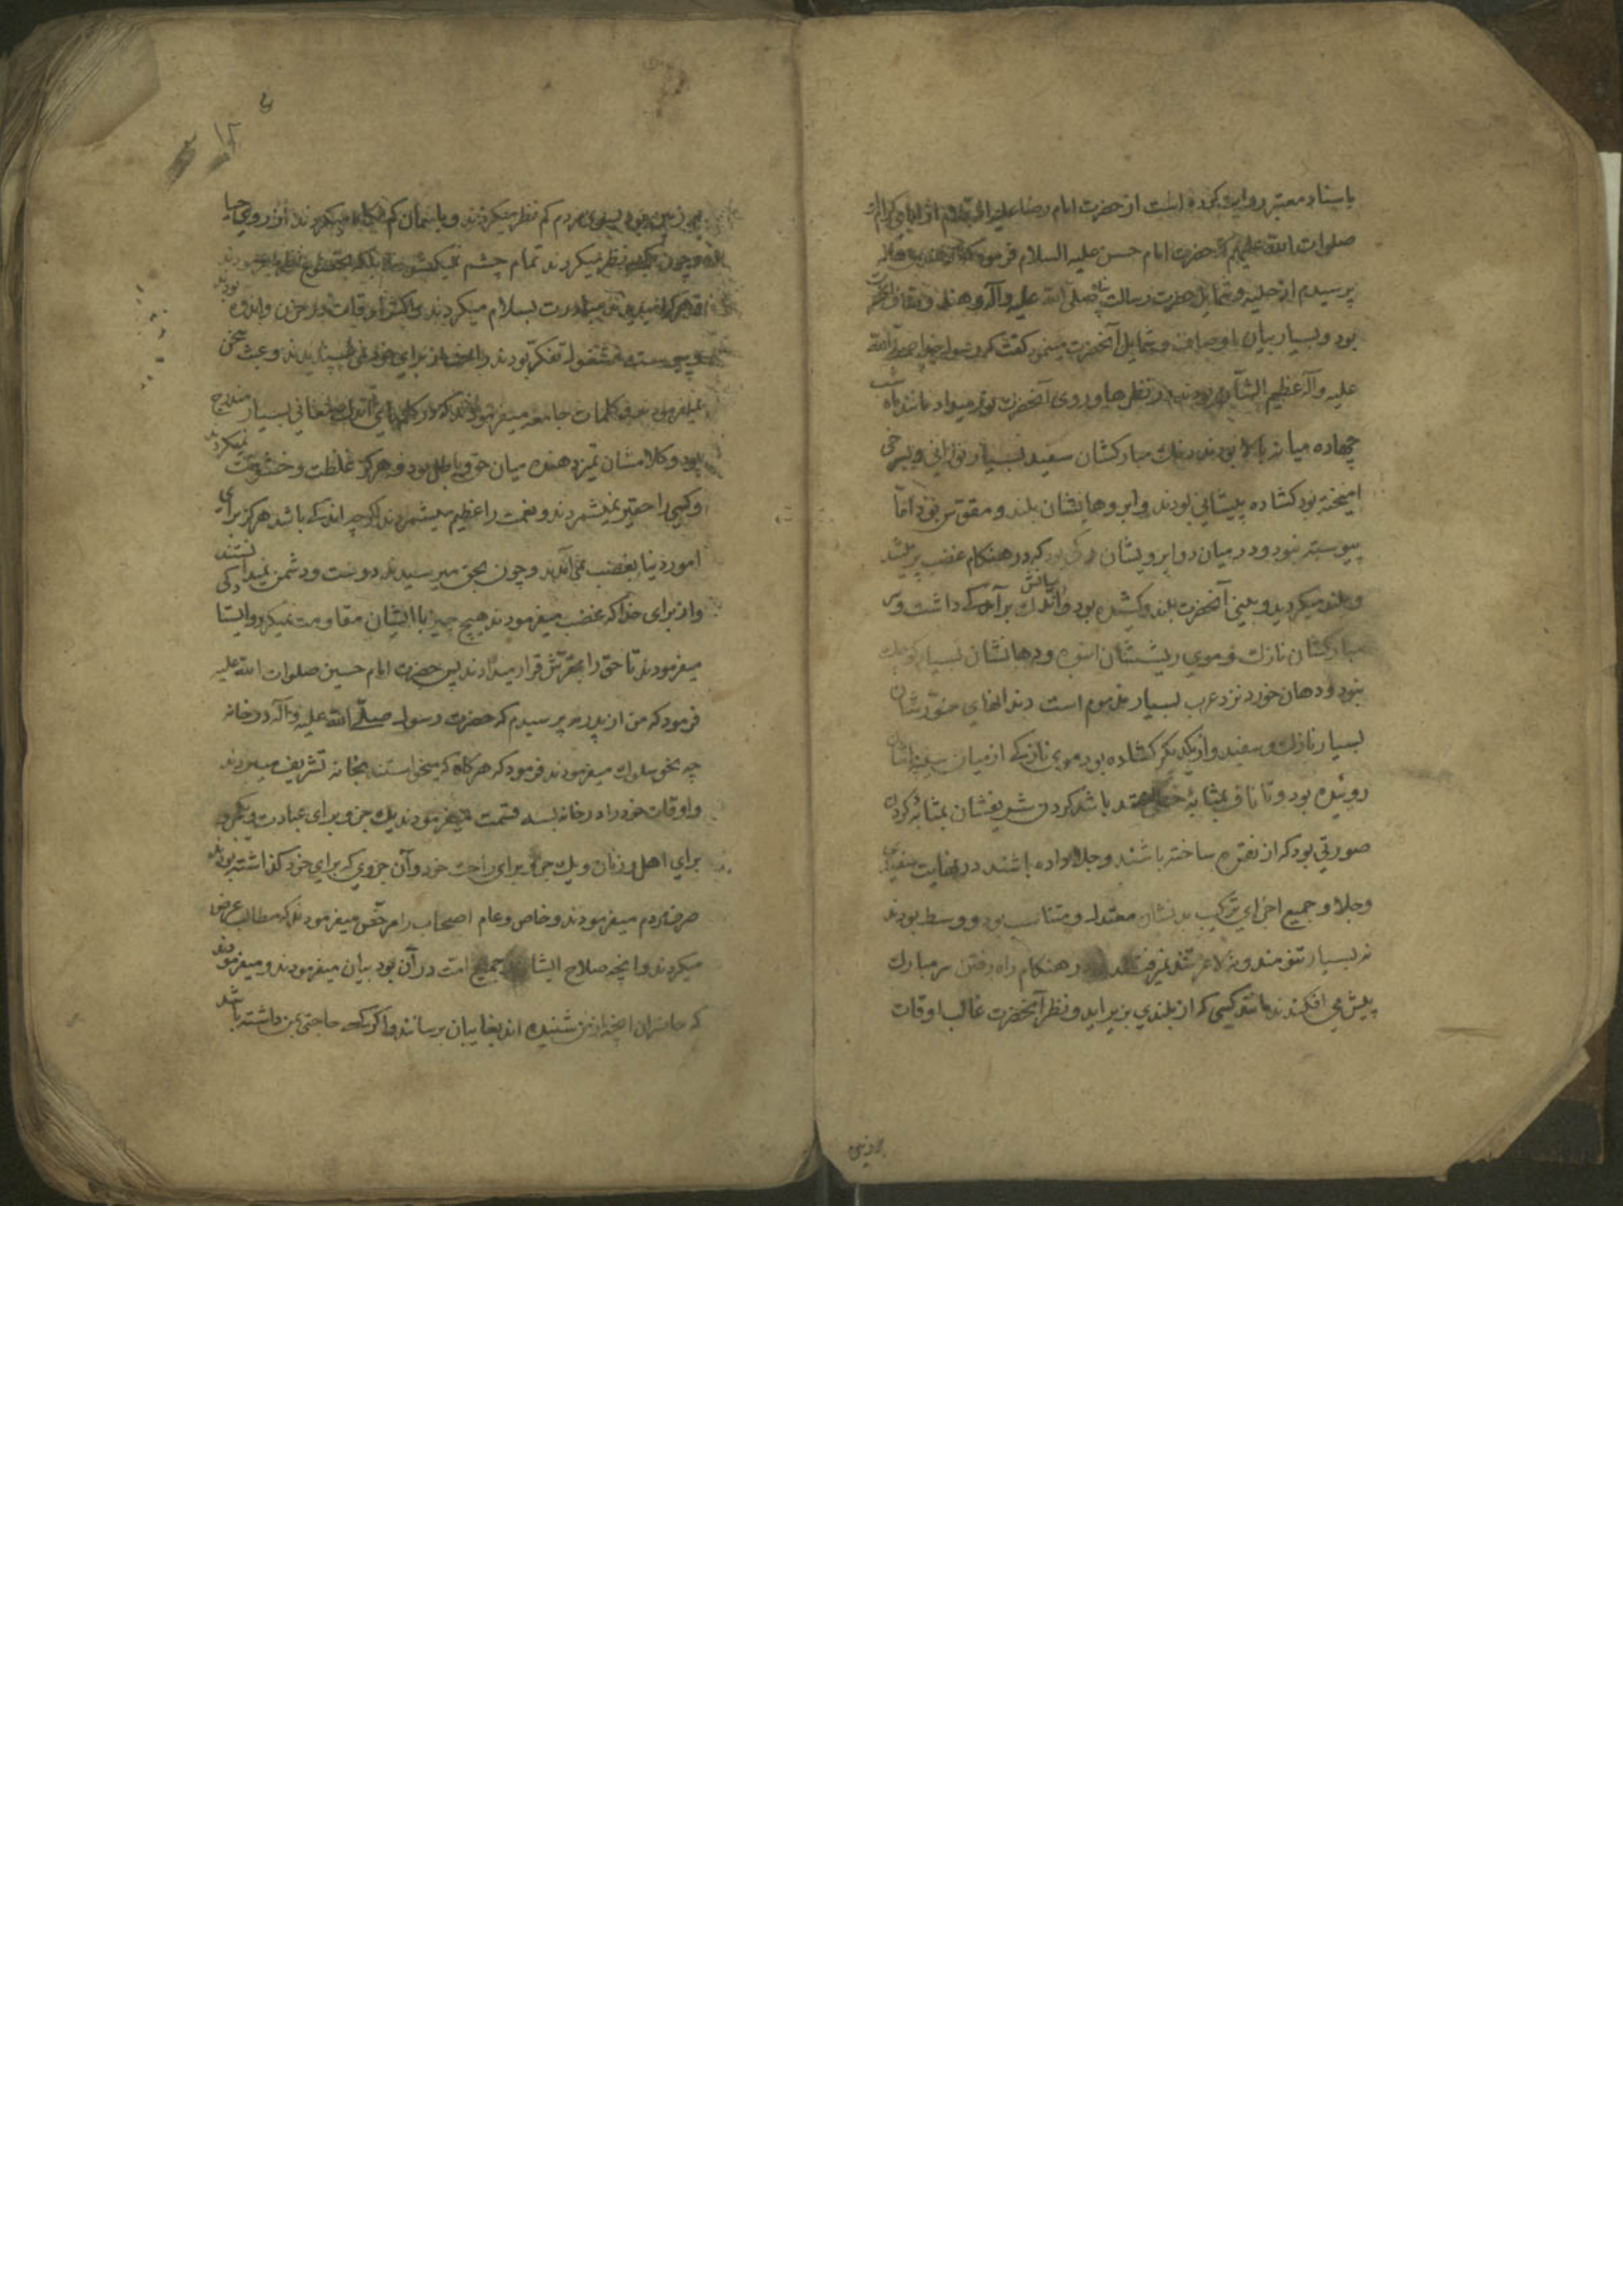 باسناد معتبر روایت کرده است از حضرت امام رضا علیه از آبای کرام
صلوات الله علیهم که حضرت امام حسن علیه السلام فرمود که از هند بن هاله
پرسیدم از حلیه و شمایل حضرت رسالت پناه صلی الله علیه و آله و هند وصاف آنحضرت
بود و بسیار بیان اوصاف و شمایل آنحضرت مینمود گفت که رسول خدا صلی الله
علیه و آله عظیم الشأن بودند در نظرها و روی آنحضرت نور میداد مانند ماه شب
چهارده میانه بالا بودند رنك مبارکشان سفید بسیار نورانی و بسرخی
امیخته بود کشاده پیشانی بودند و ابروهایشان بلند و مقوّس بود امّا
پیوسته نبود و در میان دو ابرویشان رکی بود که در هنکام غضب پر میشد
و بلند میکردید و بینی آنحضرت بلند و کشیده بود و میانش اندك برآمدکی داشت و
مبارکشان نازك و موی ریششان انبوه و دهانشان بسیار کوچك
نبود و دهان خورد نزد عرب بسیار مذموم است دندانهای منوّرشان
بسیار نازك و سفید و از یکدیکر کشاده بود موی نازکی از میان سینه اشان
روئیده بود و تا ناف بمثابهٔ خطی ممتد باشد کردن شریفشان بمثابهٔ کردن
صورتی بود که از نقره ساخته باشند و جلا داده باشند در نهایت سفیدی
و جلا و جمیع اجزای ترکیب بدنشان معتدل و متناسب بود و وسط بودند
نه بسیار تنومند و نه لاغر تند نمیرفتند در هنکام راه رفتن سر مبارك
پیش می افکندند مانند کسی که از بلندی بزیر آید و نظر آنحضرت غالب اوقات
بر زمین بود بسوی مردم کم نظر میکردند و باسمان کم نکاه میکردند از روی حیا
و چون نظر میکردند تمام چشم نمیکشودند بلکه
هر کرا میدیدند مبادرت بسلام میکردند و اکثر اوقات در حزن و اندوه بودند
و پیوسته مشغول تفکر بودند راحت از برای خود نمی پسندیدند و عبث سخن
نمیفرمودند و کلمات جامعه میفرمودند که در کلمهای اندك معانی بسیار مندرج
بود و کلامشان تمیز دهنده میان حق و باطل بود و هرکز غلظت و خشونت نمیکردند
و کسی را حقیر نمیشمردند و نعمت را عظیم میشمردند اکرچه اندکی باشد هرکز برای
امور دنیا بغضب نمی آمدند و چون بحق میرسیدند دوست و دشمن نمیدانستند
و از برای خدا که غضب میفرمودند هیچ چیز با ایشان مقاومت نمیکرد و ایستادکی
میفرمودند تا حق را بمقرّش قرار میدادند پس حضرت امام حسین صلوات الله علیه
فرمود که من از پدرم پرسیدم که حضرت رسول صلّی الله علیه و آله در خانه
چه نحو سلوك میفرمودند فرمود که هرکاه که میخواستند بخانه تشریف میبردند
و اوقات خود را در خانه بسه قسمت میفرمودند یك جزو برای عبادت و یکجزو
برای اهل و زنان و یك جزو برای راحت خود و آن جزوی که برای خود کذاشته بودند
صرف مردم میفرمودند و خاص و عام اصحاب را مرخّص میفرمودند که مطالب عرض
میکردند و انچه صلاح ایشان و جمیع امت در آن بود بیان میفرمودند و میفرمودند
که حاضران انچه از من شنیده اند بغایبان برسانند و اکر کسی حاجتی بمن داشته باشد
بر زمین